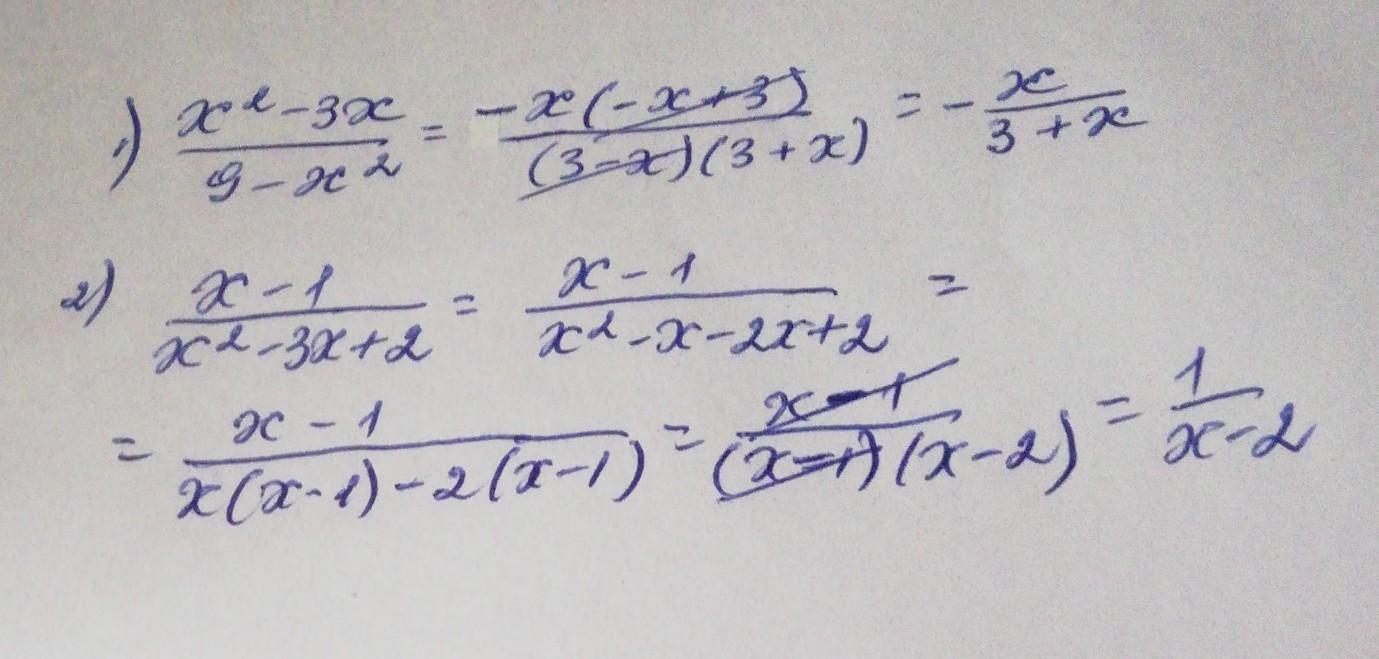 1) (x² - 3x)/(9 - x²) = (-x(-x+3))/((3-x)(3+x)) = - x/(3+x)
2) (x-1)/(x²-3x+2) = (x-1)/(x²-x-2x+2) =
= (x-1)/(x(x-1)-2(x-1)) = (x-1)/((x-1)(x-2)) = 1/(x-2)